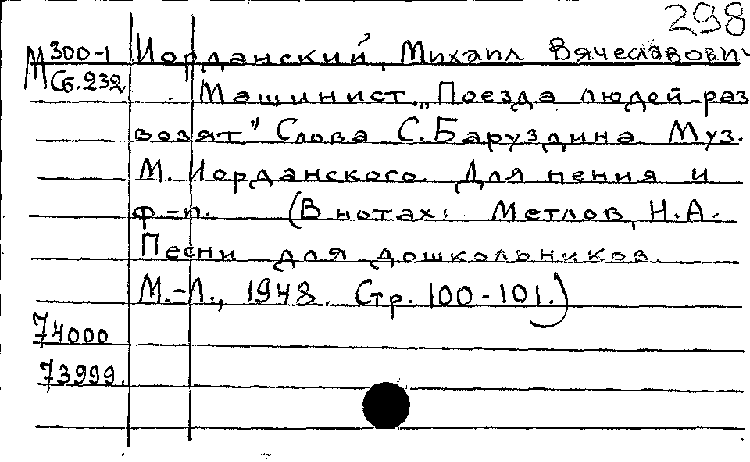 298
М 300-1 Иорданский, Михаил Вячеславович
Сб.232 Машинист „Поезда людей раз
возят" Слова С. Баруздина Муз.
М. Иорданского. Для пения и
ф-п. (В нотах: Метлов, Н.А.
Песни для дошкольников.
М.-Л., 1948. Стр. 100-101.)
74000
73999.